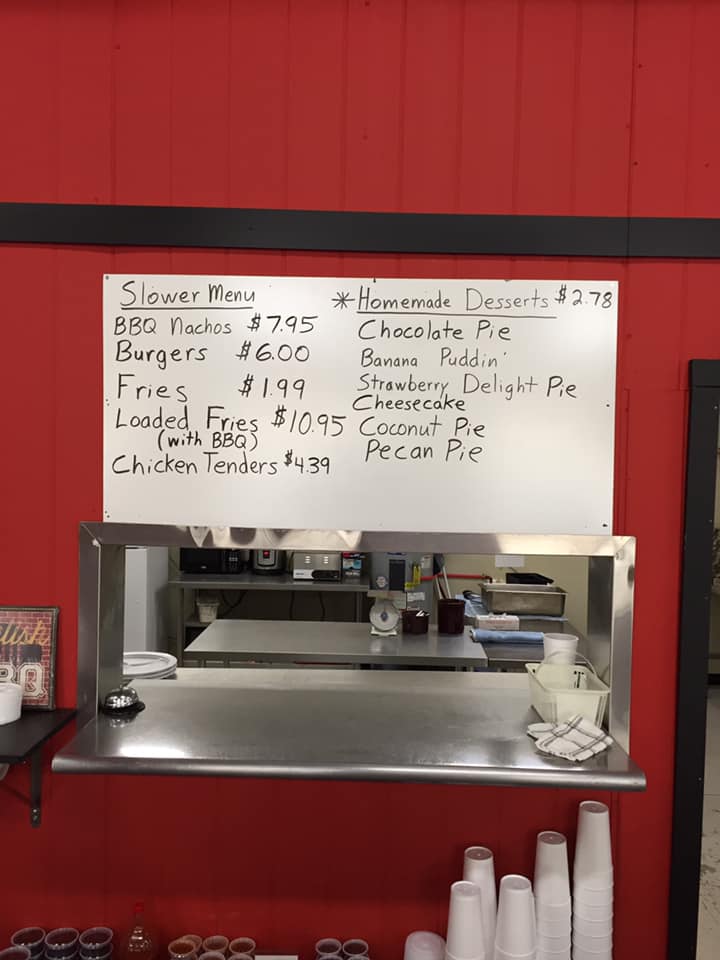 Slower Menu
BBQ Nachos $7.95
Burgers $6.00
Fries $1.99
Loaded Fries $10.95
(with BBQ)
Chicken Tenders $4.39
*Homemade Desserts $2.78
Chocolate Pie
Banana Puddin'
Strawberry Delight Pie
Cheesecake
Coconut Pie
Pecan Pie